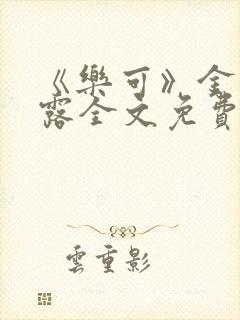 《樂可》金
露全文免費
雲重影